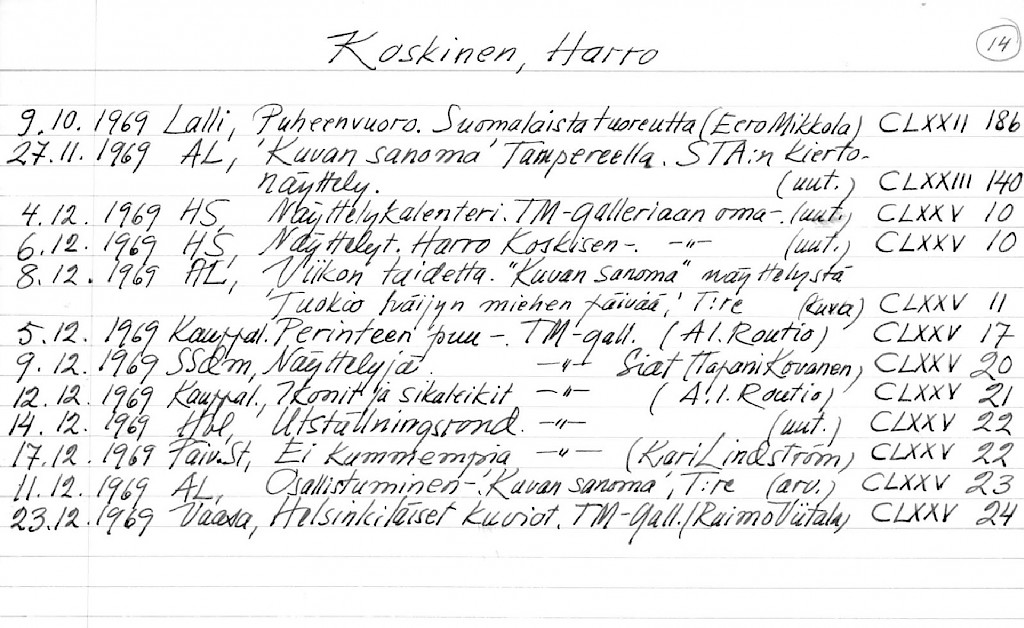 Koskinen, Harro 14
9.10.1969 Lalli, Puheenvuoro. Suomalaista tuoreutta (Eero Mikkola) CLXXII 186
27.11.1969 AL, 'Kuvan sanoma' Tampereella. STA:n kierto-
näyttely. (uut.) CLXXIII 140
4.12.1969 HS, Näyttelykalenteri. TM-galleriaan oma-. (uut.) CLXXV 10
6.12.1969 HS, Näyttelyt. Harro Koskisen-. -"- (uut.) CLXXV 10
8.12.1969 AL, Viikon taidetta. "Kuvan sanoma" näyttelystä
'Tuokio häijyn miehen päivää', T:re (kuva) CLXXV 11
5.12.1969 Kauppal. Perinteen puu-. TM-gall. (A.I. Routio) CLXXV 17
9.12.1969 SSdm, Näyttelyjä. -"- Siat (Tapani Kovanen) CLXXV 20
12.12.1969 Kauppal., Ikonit ja sikaleikit -"- (A.I. Routio) CLXXV 21
14.12.1969 Hbl, Utställningsrond. -"- (uut.) CLXXV 22
17.12.1969 Päiv.St, Ei kummempia -"- (Kari Lindström) CLXXV 22
11.12.1969 AL, Osallistuminen-. 'Kuvan sanoma', T:re (arv.) CLXXV 23
23.12.1969 Vaasa, Helsinkiläiset kuviot. TM-Gall. (Raimo Viitala) CLXXV 24